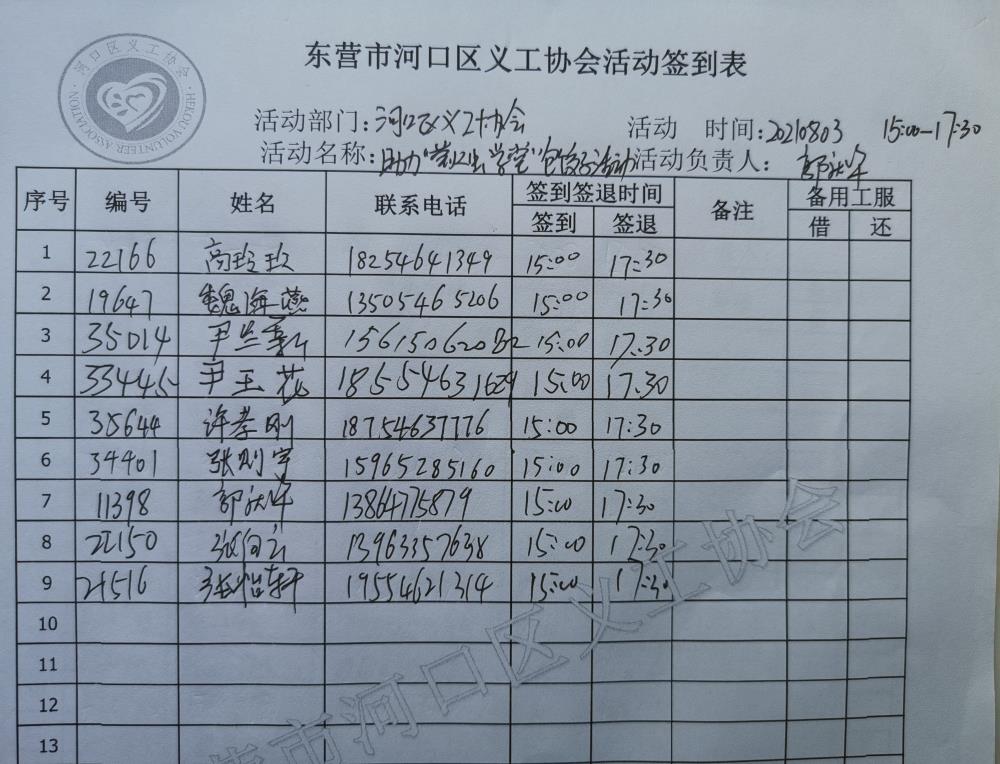 东营市河口区义工协会活动签到表
河口区义工协会
HEKOU VOLUNTEER ASSOCIATION
活动部门：河口区义工协会 活动 时间：20210803 15:00-17:30
活动名称：助力 活动 活动负责人：
序号 编号 姓名 联系电话 签到签退时间 备注 备用工服
签到 签退 借 还
1 22166 高玲玲 18254641349 15:00 17:30
2 19647 魏海燕 13505465206 15:00 17:30
3 35014 尹兰 15:00 17:30
4 33445 尹玉花 15:00 17:30
5 35644 许孝刚 18754637776 15:00 17:30
6 34401 张则宇 15965285160 15:00 17:30
7 11398 13864775879 15:00 17:30
8 22150 13963357638 15:00 17:30
9 21516 张怡轩 19554621314 15:00 17:30
10
11
12
13
营市河口区义工协会